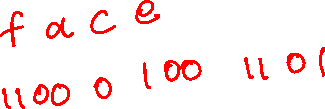 f a c e
1100 0 100 1101